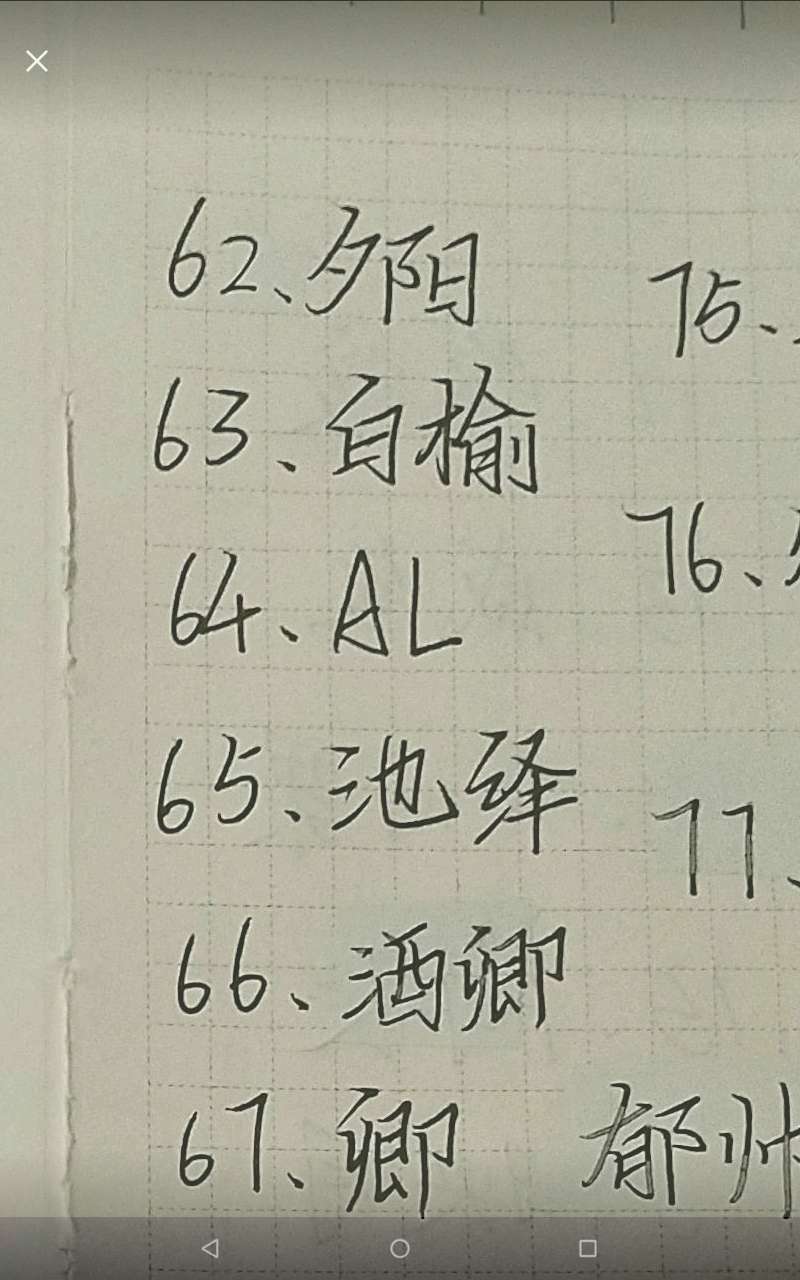 62、夕阳
63、白榆
64、AL
65、池绎
66、酒卿
67、卿
郁帅
75、
76、
77、